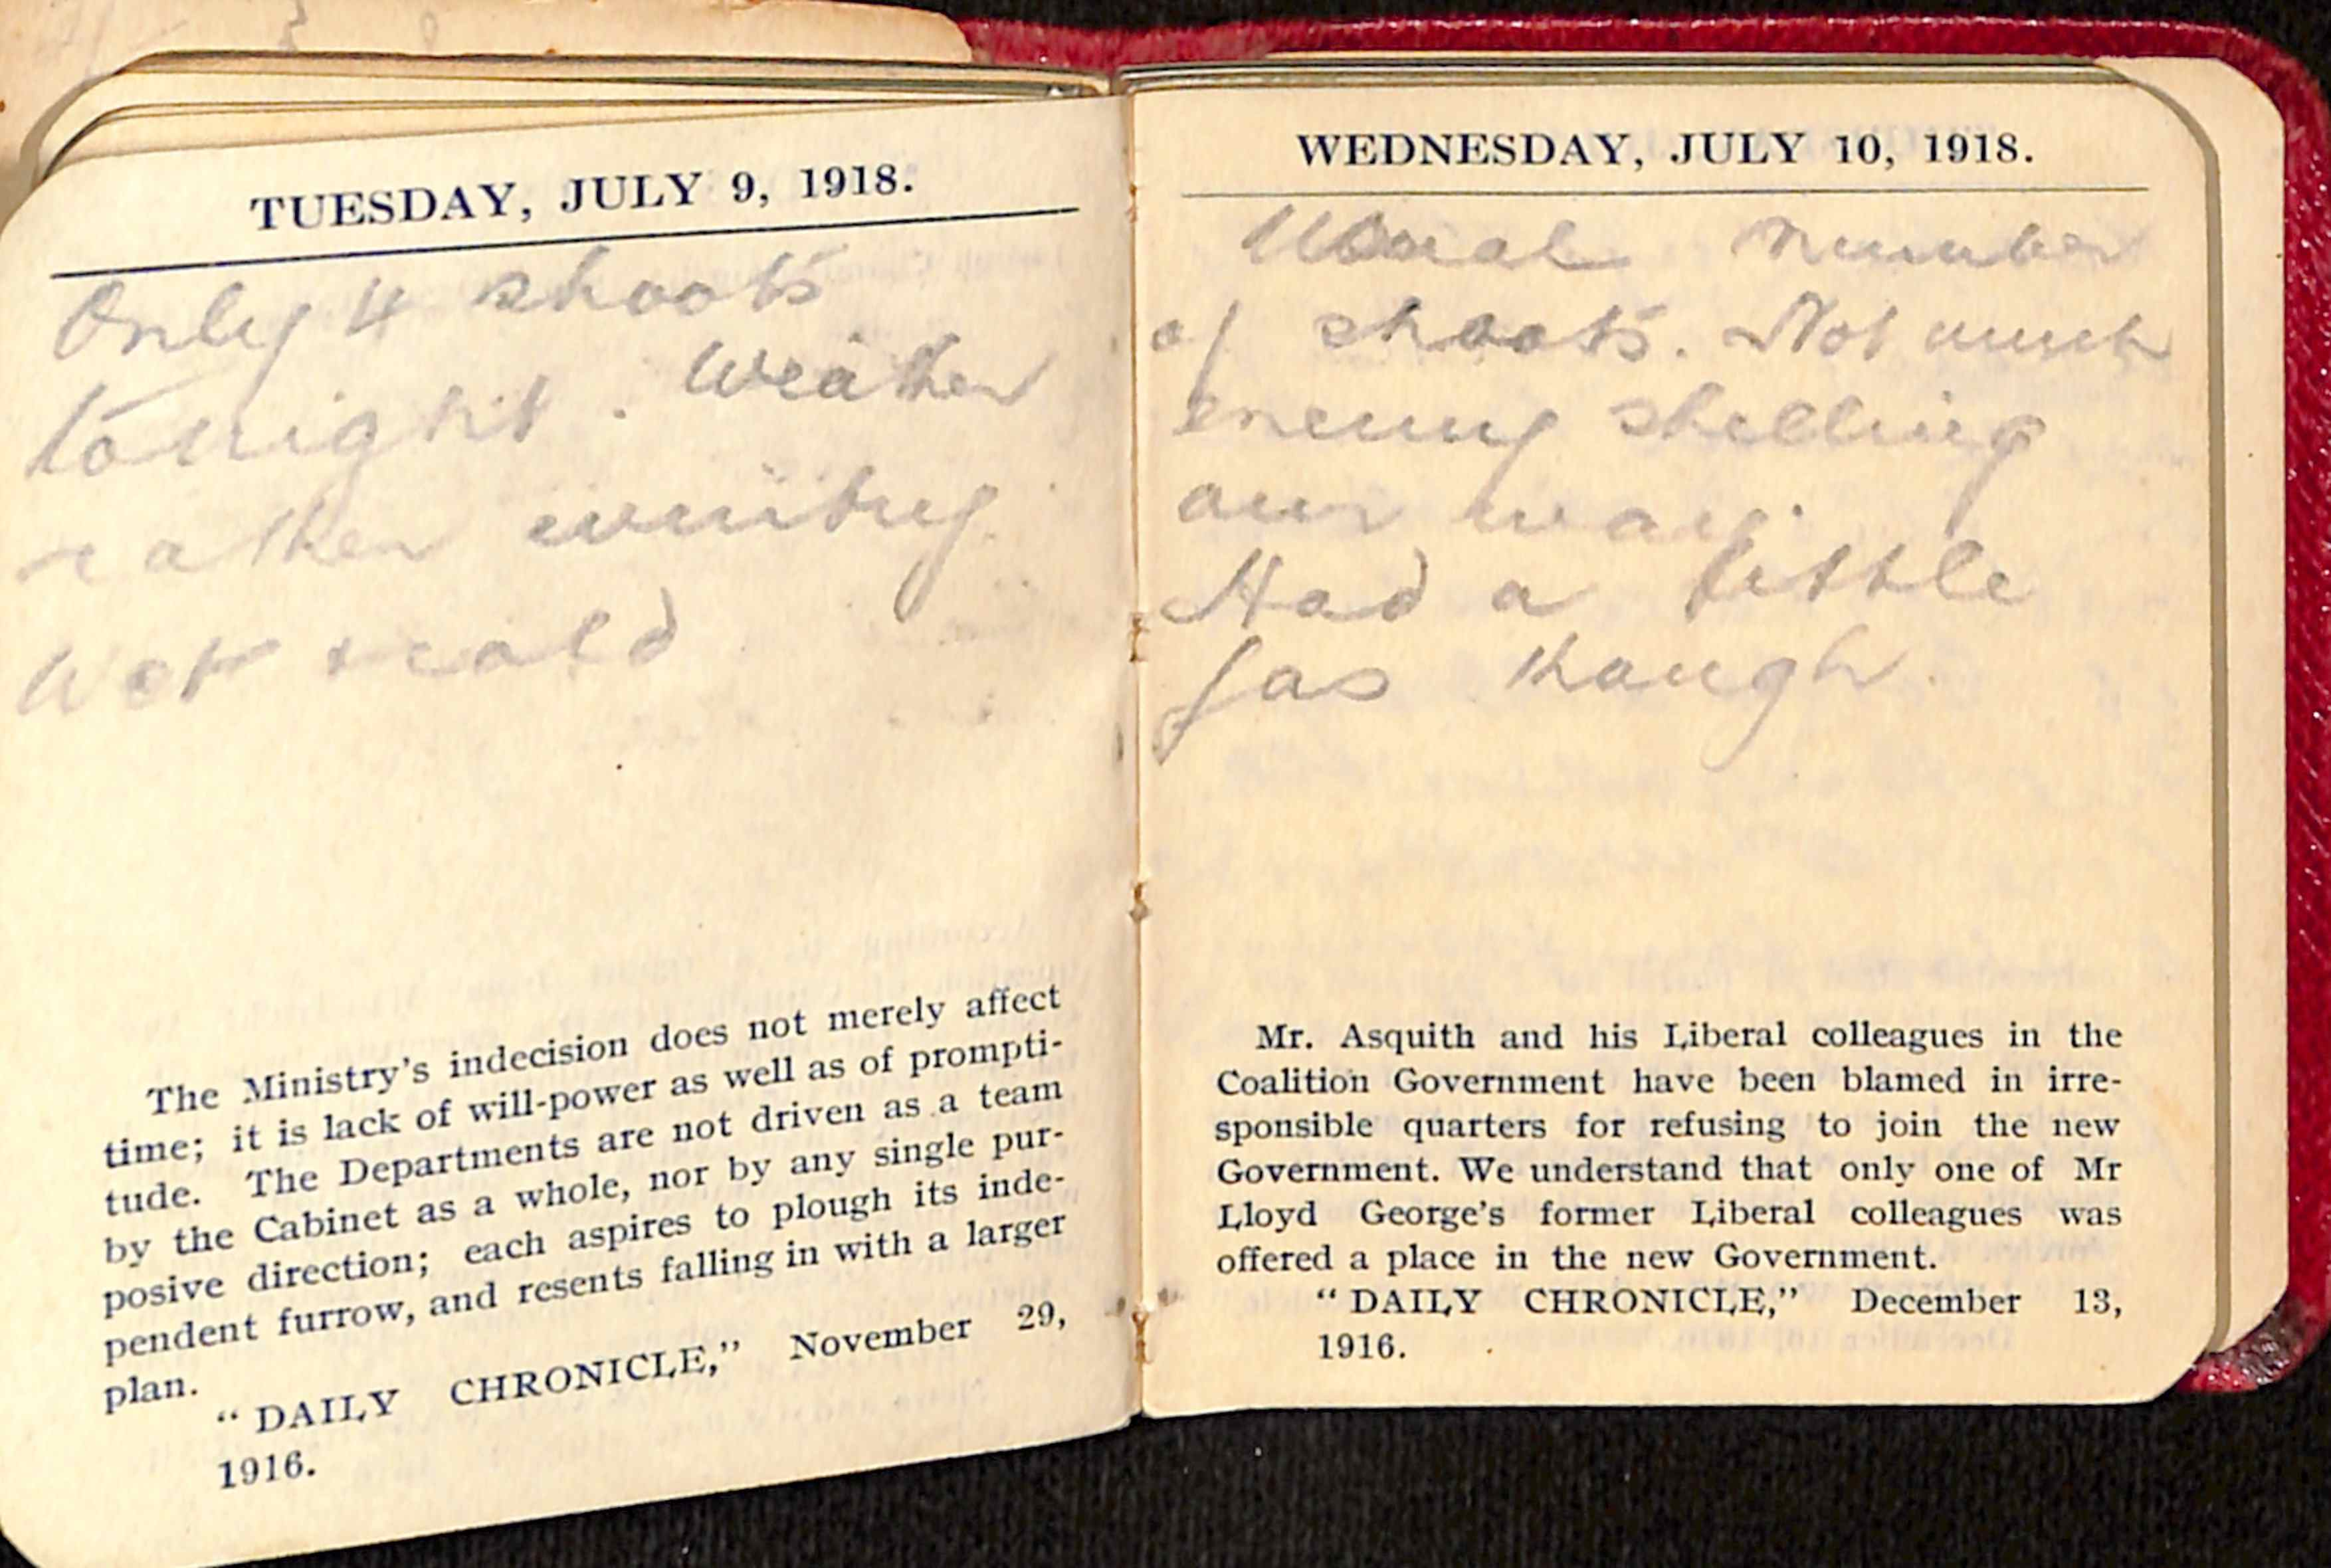 TUESDAY, JULY 9, 1918.
Only 4 shoots
tonight. Weather
rather wintry
wet & cold
The Ministry's indecision does not merely affect
time; it is lack of will-power as well as of prompti-
tude. The Departments are not driven as a team
by the Cabinet as a whole, nor by any single pur-
posive direction; each aspires to plough its inde-
pendent furrow, and resents falling in with a larger
plan.
"DAILY CHRONICLE," November 29,
1916.
WEDNESDAY, JULY 10, 1918.
Usual number
of shoots. Not much
enemy shelling
our way.
Had a little
gas though.
Mr. Asquith and his Liberal colleagues in the
Coalition Government have been blamed in irre-
sponsible quarters for refusing to join the new
Government. We understand that only one of Mr
Lloyd George's former Liberal colleagues was
offered a place in the new Government.
"DAILY CHRONICLE," December 13,
1916.